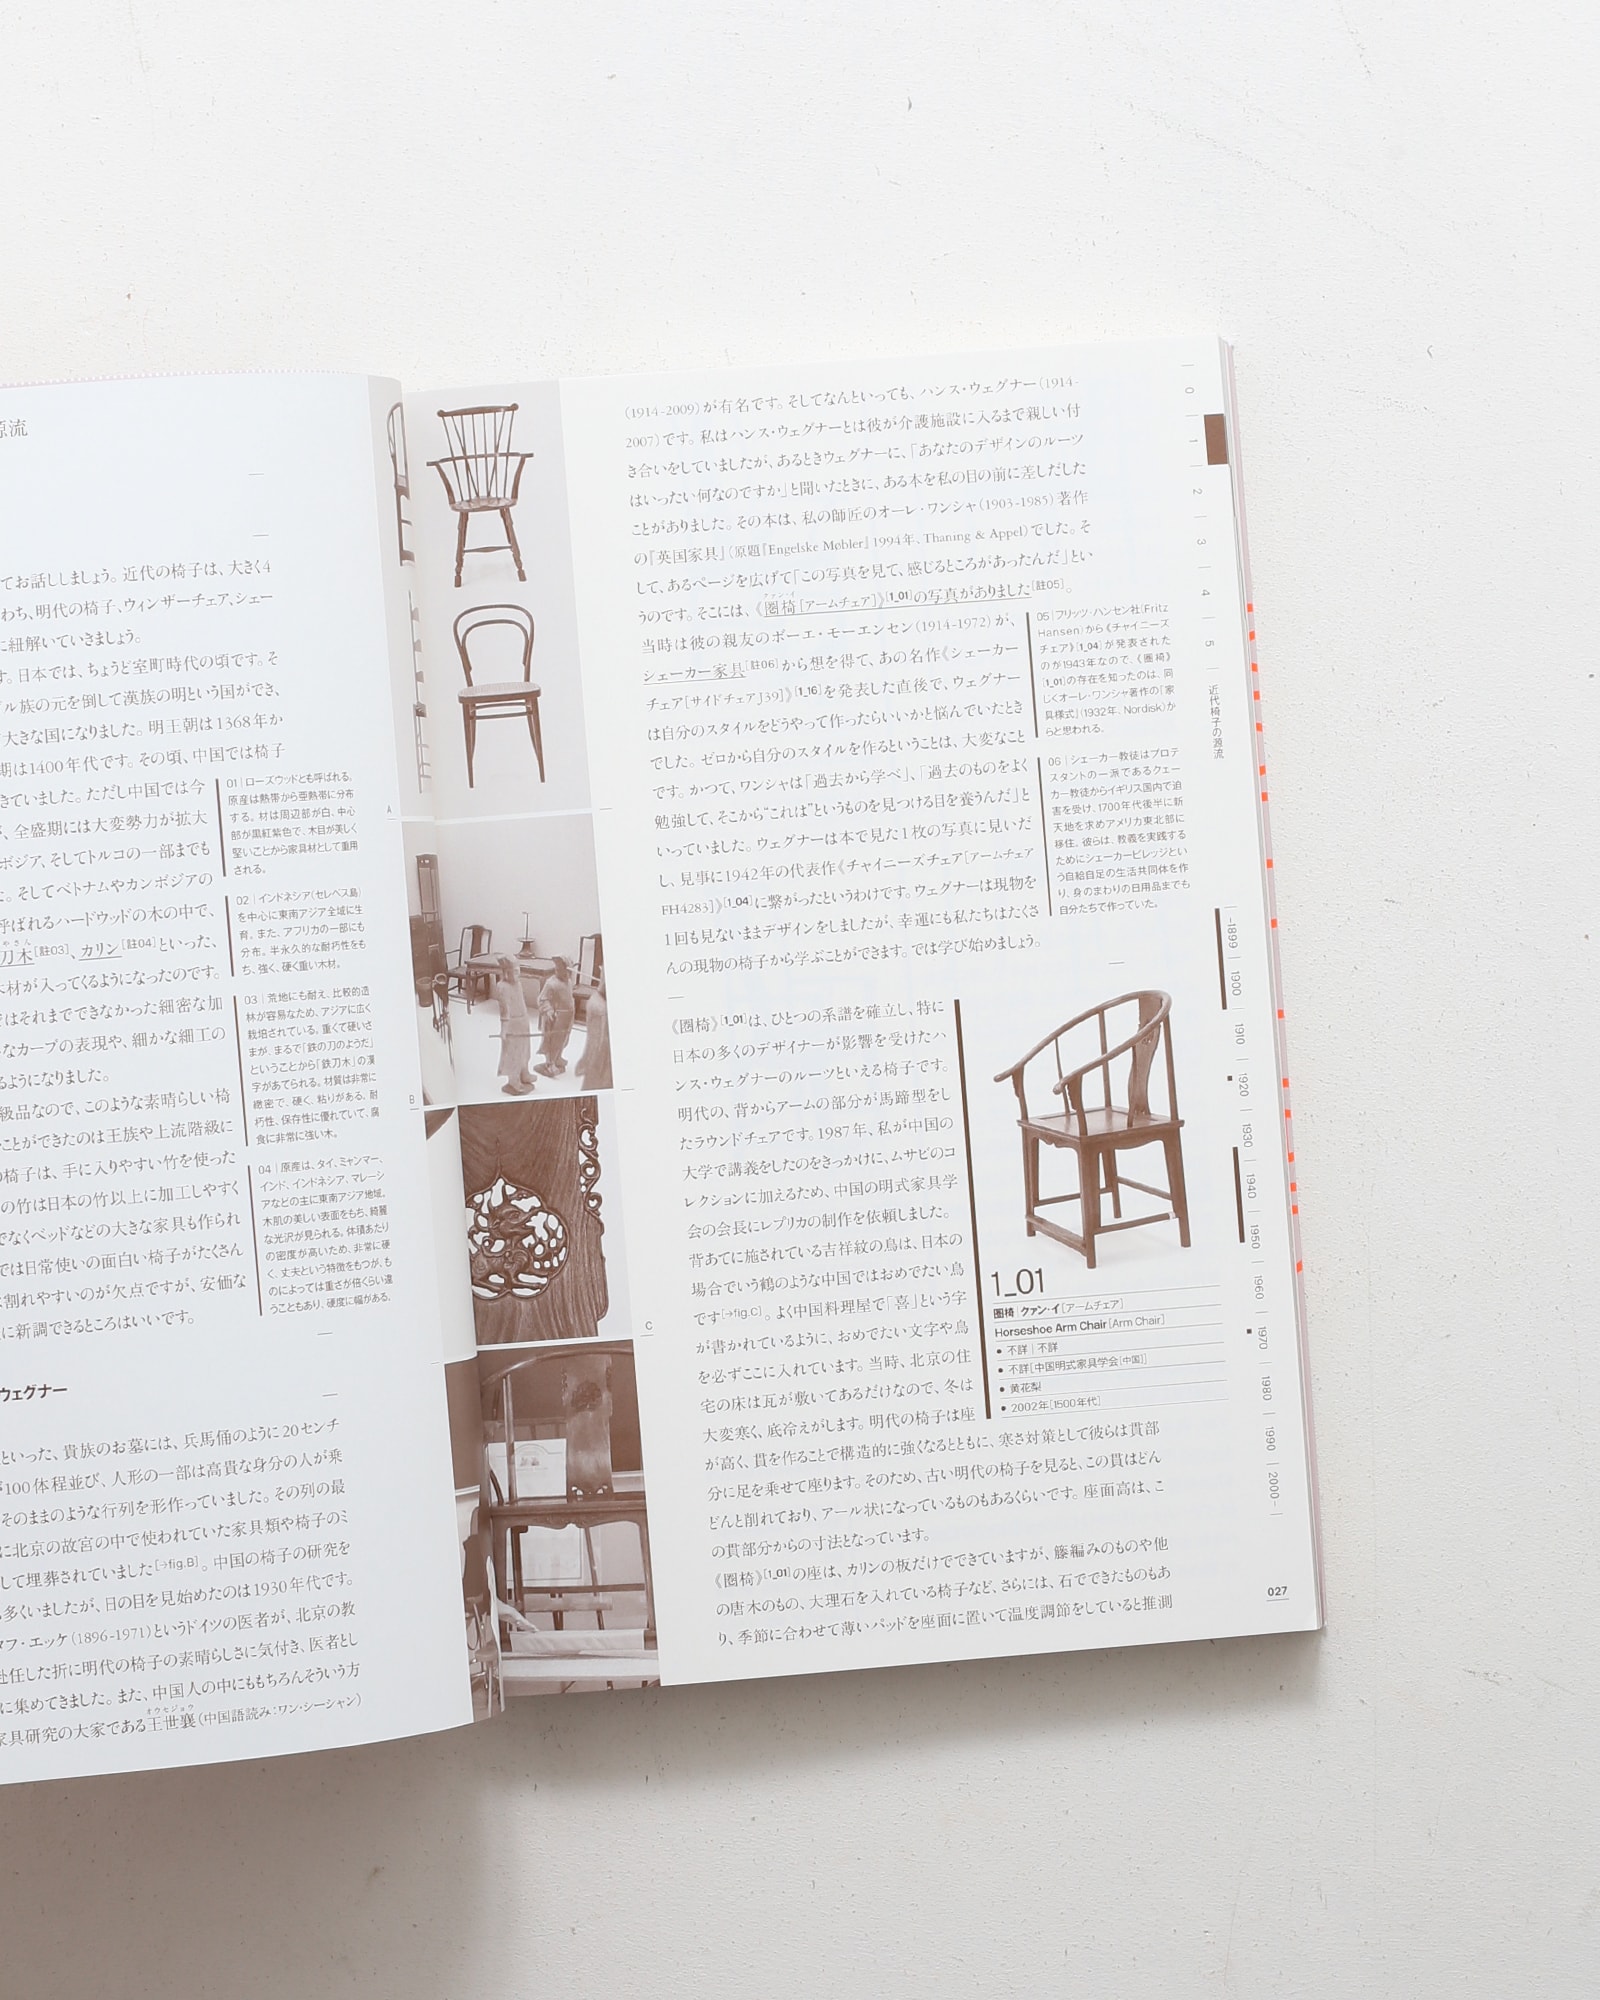 源流
てお話ししましょう。近代の椅子は、大きく4
わち、明代の椅子、ウィンザーチェア、シェー
に紐解いていきましょう。
す。日本では、ちょうど室町時代の頃です。そ
ル族の元を倒して漢族の明という国ができ、
大きな国になりました。明王朝は1368年か
期は1400年代です。その頃、中国では椅子
きていました。ただし中国では今
、全盛期には大変勢力が拡大
ボジア、そしてトルコの一部までも
た。そしてベトナムやカンボジアの
呼ばれるハードウッドの木の中で、
刀木[註03]、カリン[註04]といった、
木材が入ってくるようになったのです。
ではそれまでできなかった細密な加
なカーブの表現や、細かな細工の
るようになりました。
級品なので、このような素晴らしい椅
ことができたのは王族や上流階級に
の椅子は、手に入りやすい竹を使った
の竹は日本の竹以上に加工しやすく
でなくベッドなどの大きな家具も作られ
では日常使いの面白い椅子がたくさん
割れやすいのが欠点ですが、安価な
に新調できるところはいいです。
01|ローズウッドとも呼ばれる。
原産は熱帯から亜熱帯に分布
する。材は周辺部が白、中心
部が黒紅紫色で、木目が美しく
堅いことから家具材として重用
される。
02|インドネシア(セレベス島)
を中心に東南アジア全域に生
育。また、アフリカの一部にも
分布。半永久的な耐朽性をも
ち、強く、硬く重い木材。
03|荒地にも耐え、比較的造
林が容易なため、アジアに広く
栽培されている。重くて硬いさ
まが、まるで「鉄の刀のようだ」
ということから「鉄刀木」の漢
字があてられる。材質は非常に
緻密で、硬く、粘りがある。耐
朽性、保存性に優れていて、腐
食に非常に強い木。
04|原産は、タイ、ミャンマー、
インド、インドネシア、マレーシ
アなどの主に東南アジア地域。
木肌の美しい表面をもち、綺麗
な光沢が見られる。体積あたり
の密度が高いため、非常に硬
く、丈夫という特徴をもつが、も
のによっては重さが倍くらい違
うこともあり、硬度に幅がある。
ウェグナー
といった、貴族のお墓には、兵馬俑のように20センチ
が100体程並び、人形の一部は高貴な身分の人が乗
そのままのような行列を形作っていました。その列の最
に北京の故宮の中で使われていた家具類や椅子のミ
して埋葬されていました[→fig.B]。中国の椅子の研究を
多くいましたが、日の目を見始めたのは1930年代です。
タフ・エッケ(1896-1971)というドイツの医者が、北京の教
赴任した折に明代の椅子の素晴らしさに気付き、医者とし
に集めてきました。また、中国人の中にももちろんそういう方
家具研究の大家である王世襄(中国語読み:ワン・シーシャン)
オウセジョウ
A
B
C
(1914-2009)が有名です。そしてなんといっても、ハンス・ウェグナー(1914-
2007)です。私はハンス・ウェグナーとは彼が介護施設に入るまで親しい付
き合いをしていましたが、あるときウェグナーに、「あなたのデザインのルーツ
はいったい何なのですか」と聞いたときに、ある本を私の目の前に差しだした
ことがありました。その本は、私の師匠のオーレ・ワンシャ(1903-1985)著作
の『英国家具』(原題『Engelske Møbler』1994年、Thaning & Appel)でした。そ
して、あるページを広げて「この写真を見て、感じるところがあったんだ」とい
うのです。そこには、《圏椅[アームチェア]》[1_01]の写真がありました[註05]。
クァン・イ
当時は彼の親友のボーエ・モーエンセン(1914-1972)が、
シェーカー家具[註06]から想を得て、あの名作《シェーカー
チェア[サイドチェアJ39]》[1_16]を発表した直後で、ウェグナー
は自分のスタイルをどうやって作ったらいいかと悩んでいたとき
でした。ゼロから自分のスタイルを作るということは、大変なこと
です。かつて、ワンシャは「過去から学べ」、「過去のものをよく
勉強して、そこから“これは”というものを見つける目を養うんだ」と
いっていました。ウェグナーは本で見た1枚の写真に見いだ
し、見事に1942年の代表作《チャイニーズチェア[アームチェア
FH4283]》[1_04]に繋がったというわけです。ウェグナーは現物を
1回も見ないままデザインをしましたが、幸運にも私たちはたくさ
んの現物の椅子から学ぶことができます。では学び始めましょう。
05|フリッツ・ハンセン社(Fritz
Hansen)から《チャイニーズ
チェア》[1_04]が発表された
のが1943年なので、《圏椅》
[1_01]の存在を知ったのは、同
じくオーレ・ワンシャ著作の『家
具様式』(1932年、Nordisk)か
らと思われる。
06|シェーカー教徒はプロテ
スタントの一派であるクェー
カー教徒からイギリス国内で迫
害を受け、1700年代後半に新
天地を求めアメリカ東北部に
移住。彼らは、教義を実践する
ためにシェーカービレッジとい
う自給自足の生活共同体を作
り、身のまわりの日用品までも
自分たちで作っていた。
《圏椅》[1_01]は、ひとつの系譜を確立し、特に
日本の多くのデザイナーが影響を受けたハ
ンス・ウェグナーのルーツといえる椅子です。
明代の、背からアームの部分が馬蹄型をし
たラウンドチェアです。1987年、私が中国の
大学で講義をしたのをきっかけに、ムサビのコ
レクションに加えるため、中国の明式家具学
会の会長にレプリカの制作を依頼しました。
背あてに施されている吉祥紋の鳥は、日本の
場合でいう鶴のような中国ではおめでたい鳥
です[→fig.C]。よく中国料理屋で「喜」という字
が書かれているように、おめでたい文字や鳥
を必ずここに入れています。当時、北京の住
宅の床は瓦が敷いてあるだけなので、冬は
大変寒く、底冷えがします。明代の椅子は座
が高く、貫を作ることで構造的に強くなるとともに、寒さ対策として彼らは貫部
分に足を乗せて座ります。そのため、古い明代の椅子を見ると、この貫はどん
どんと削れており、アール状になっているものもあるくらいです。座面高は、こ
の貫部分からの寸法となっています。
《圏椅》[1_01]の座は、カリンの板だけでできていますが、籐編みのものや他
の唐木のもの、大理石を入れている椅子など、さらには、石でできたものもあ
り、季節に合わせて薄いパッドを座面に置いて温度調節をしていると推測
1_01
圏椅|クァン・イ[アームチェア]
Horseshoe Arm Chair[Arm Chair]
• 不詳|不詳
• 不詳[中国明式家具学会[中国]]
• 黄花梨
• 2002年[1500年代]
0
1
2
3
4
5
近代椅子の源流
-1899
1900
1910
1920
1930
1940
1950
1960
1970
1980
1990
2000-
027